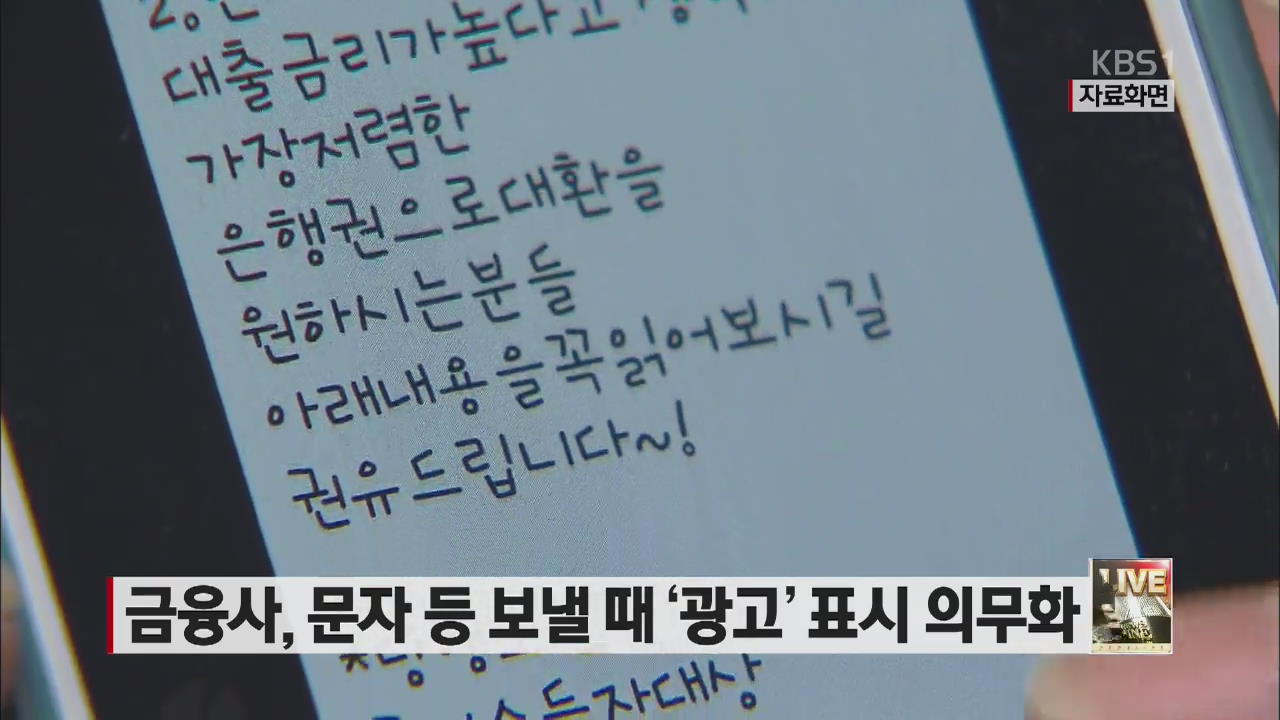 대출금리가높다고
가장저렴한
은행권으로대환을
원하시는분들
아래내용을꼭읽어보시길
권유드립니다~!
KBS1
자료화면
금융사, 문자 등 보낼 때 ‘광고’ 표시 의무화
LIVE
자대상